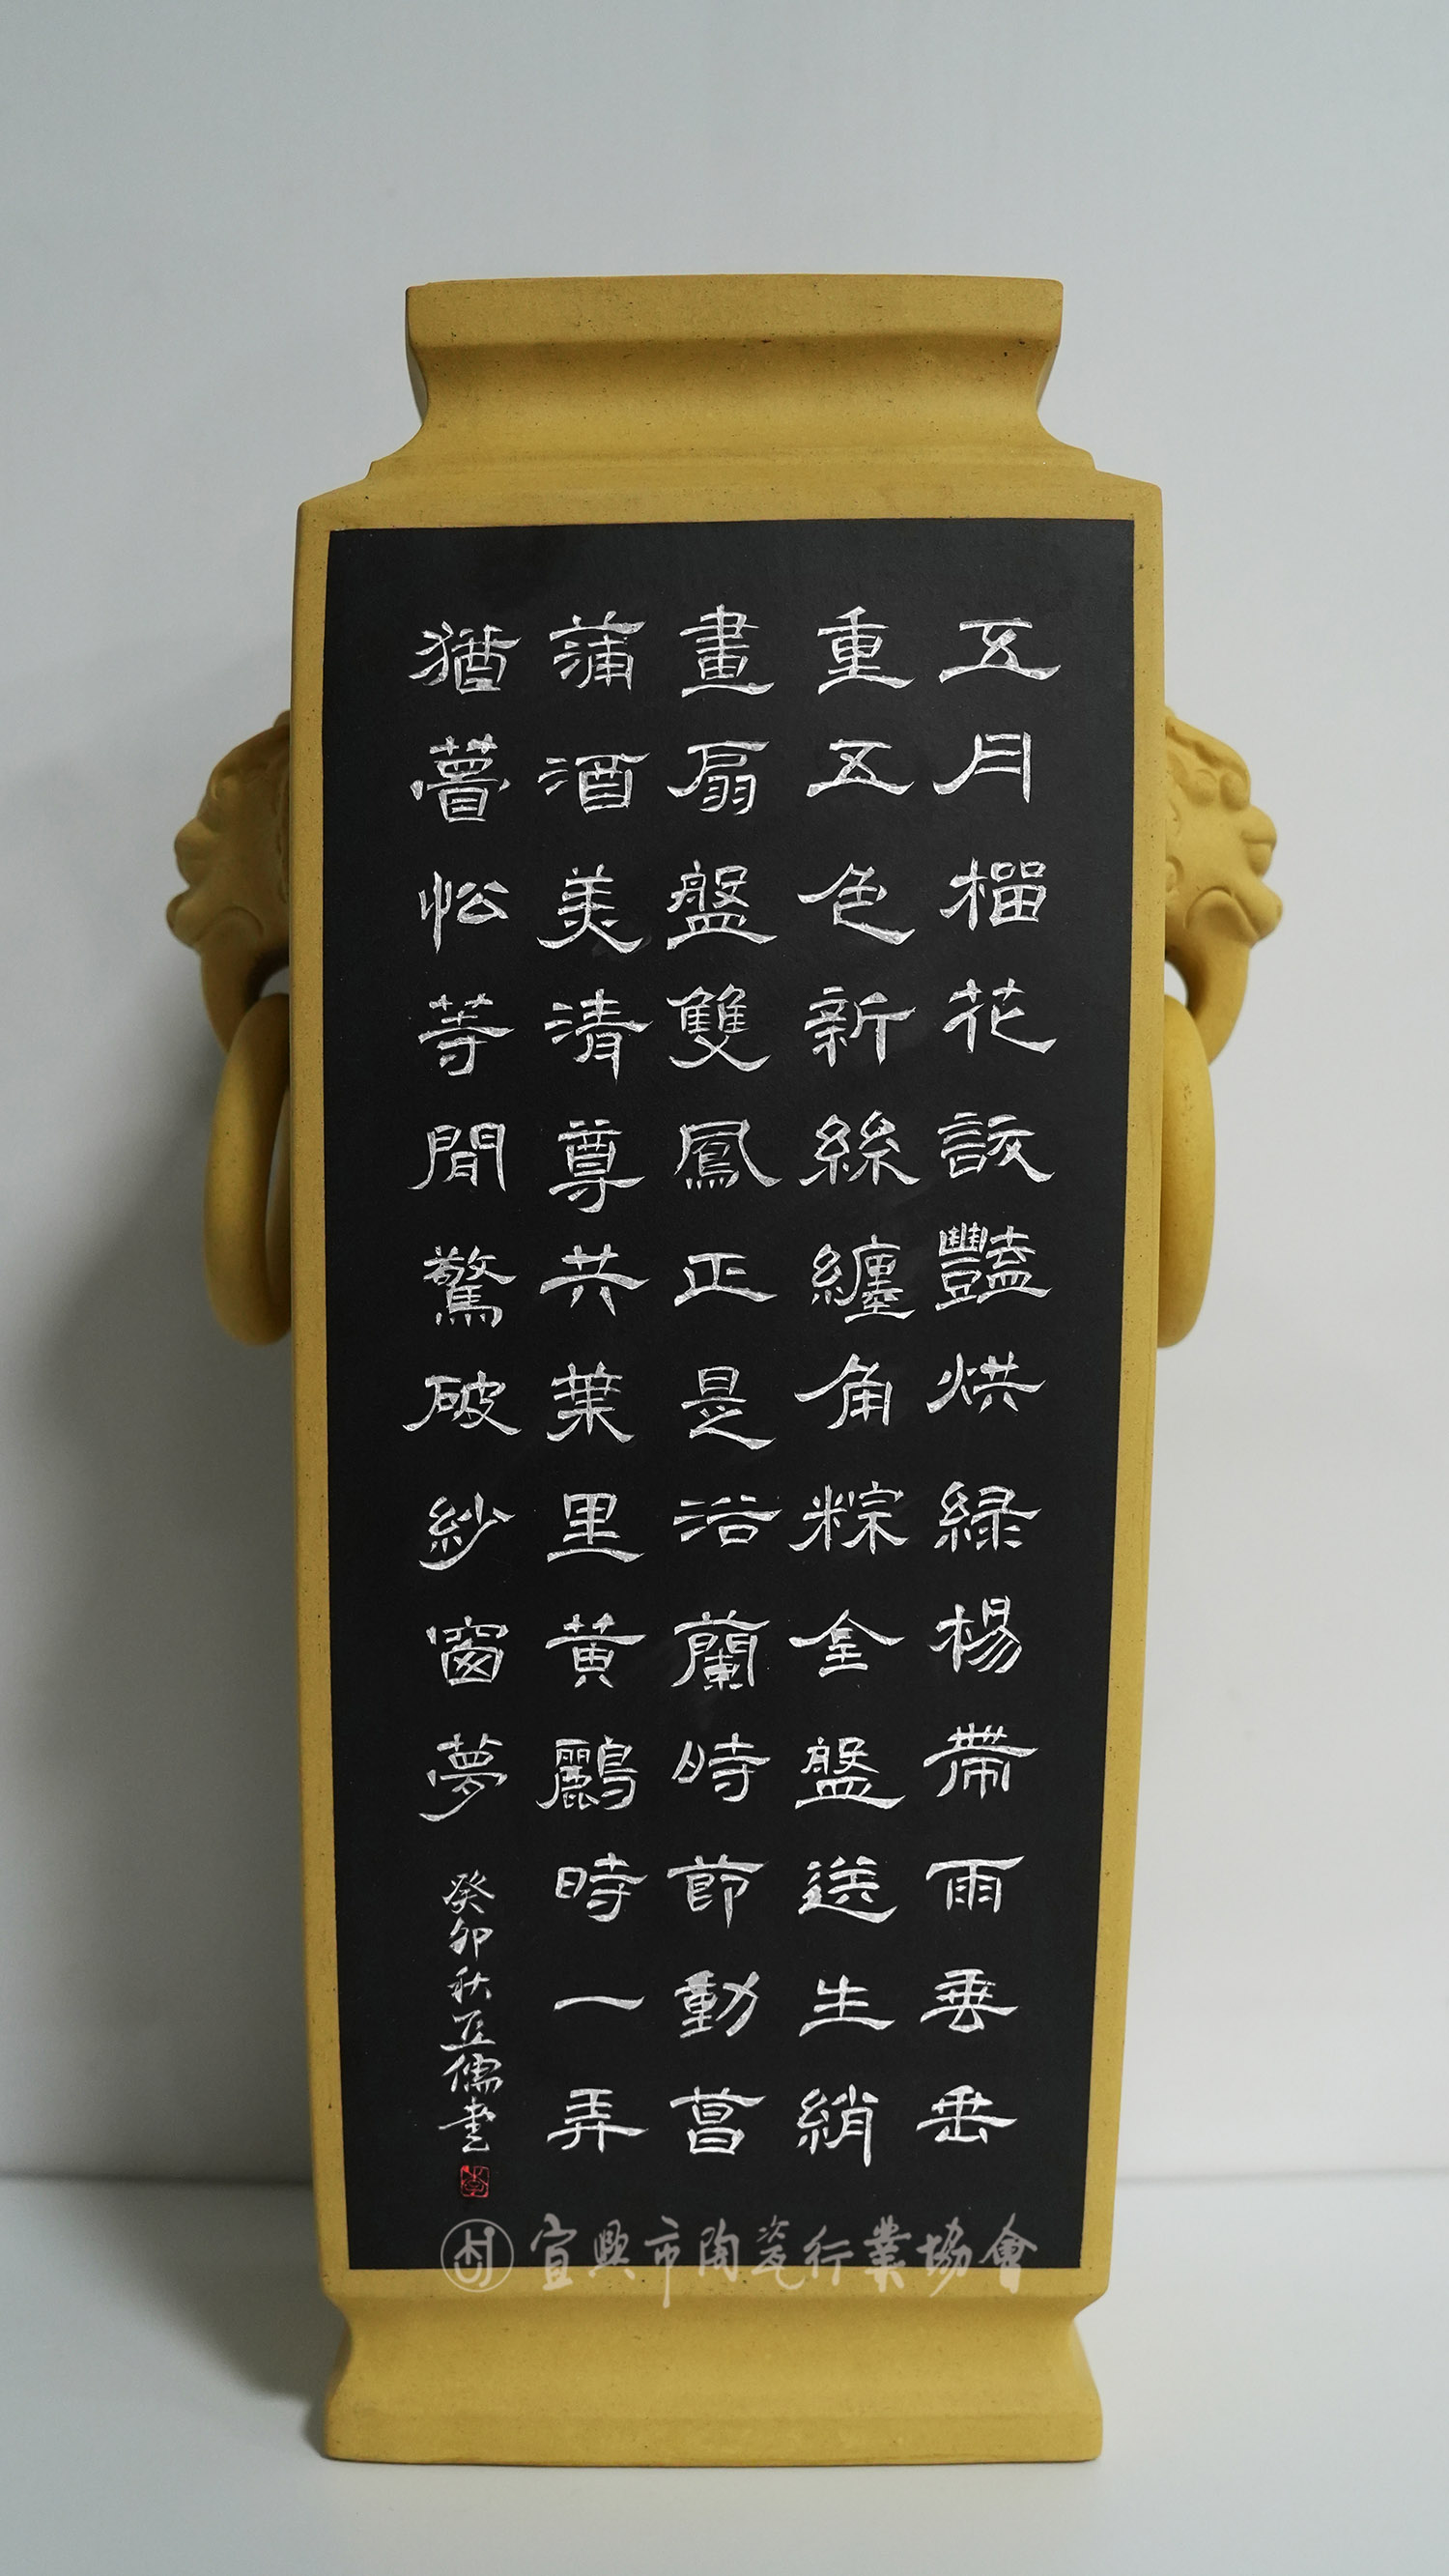 五月榴花訞豔烘緑楊帶雨垂垂
重五色新絲纏角粽金盤送生綃
畫扇盤雙鳳正是浴蘭時節動菖
蒲酒美清尊共葉里黄鸝時一弄
猶瞢忪等閒驚破紗窗夢
癸卯秋儒書
宜興市陶瓷行業協會